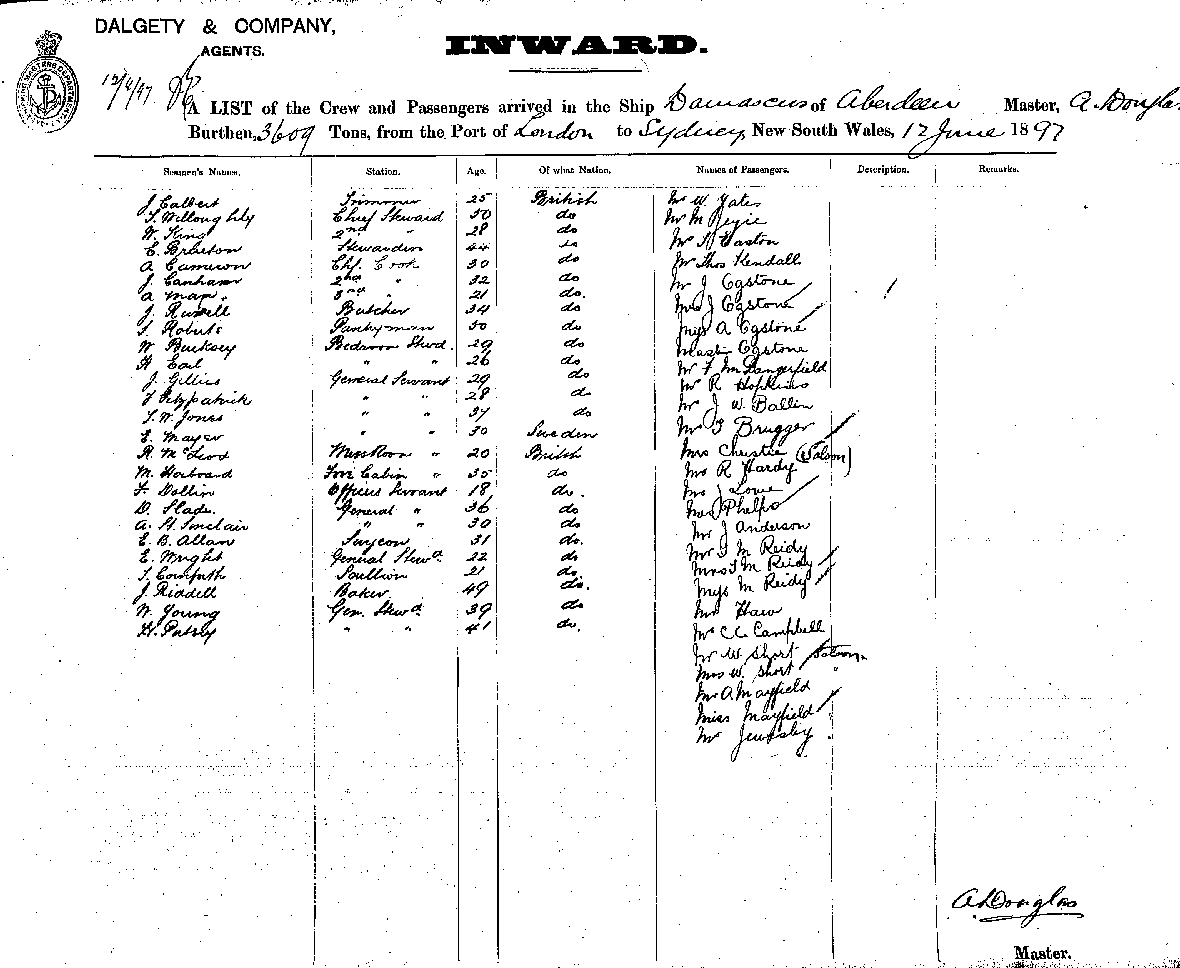 DALGETY & COMPANY,
AGENTS.
INWARD.
A LIST of the Crew and Passengers arrived in the Ship Damascus of Aberdeen Master, A. Douglas
Burthen, 3609 Tons, from the Port of London to Sydney, New South Wales, 17 June 1897
Seamen's Names. Station. Age. Of what Nation. Names of Passengers. Description. Remarks.
J Calbert Trimmer 25 British Mr W. Yates
T. Willoughby Chief Steward 50 do Mr M
W. King 2nd " 28 do Mr Easton
E. Stewardess 44 do Mr Thos Kendall
A Cameron Chf. Cook 30 do Mr J Egstone
J. Canham 2nd " 32 do Mrs J Egstone
A Man 3rd " 21 do. Miss A Egstone
J. Russell Butcher 34 do Master Egstone
T. Roberts Pantryman 50 do Mr F M Dangerfield
W Bucksey Bedroom Stwd. 29 do Mr R Hopkins
H Earl " " 26 do Mr J W. Ballin
J. Gillies General Servant 29 do Mr F Brugger
Fitzpatrick " " 28 do Mrs Christie (Saloon)
T. W Jones " " 37 do Mrs R Hardy
E. Mayer " " 30 Sweden Mrs J Lowe
R. McLeod Messroom " 20 British Mrs Phelps
M. Fore Cabin " 35 do Mr J Anderson
F. Dollin Officers Servant 18 do. Mr T M Reidy
D. Slade. General " 36 do Mrs T M Reidy
A. St. Sinclair " " 30 do Miss M Reidy
E. B. Allan Surgeon 31 do. Mr Haw
E. Wright General Stewd. 22 do Mr C. C. Campbell
T. Cornforth Scullion 21 do. Mr W Short Saloon
J. Riddell Baker 49 do. Mrs W. Short "
W. Young Gen. Stewd. 39 do Mr A Mayfield
H. " " 41 do. Miss Mayfield
Mr
A Douglas
Master.